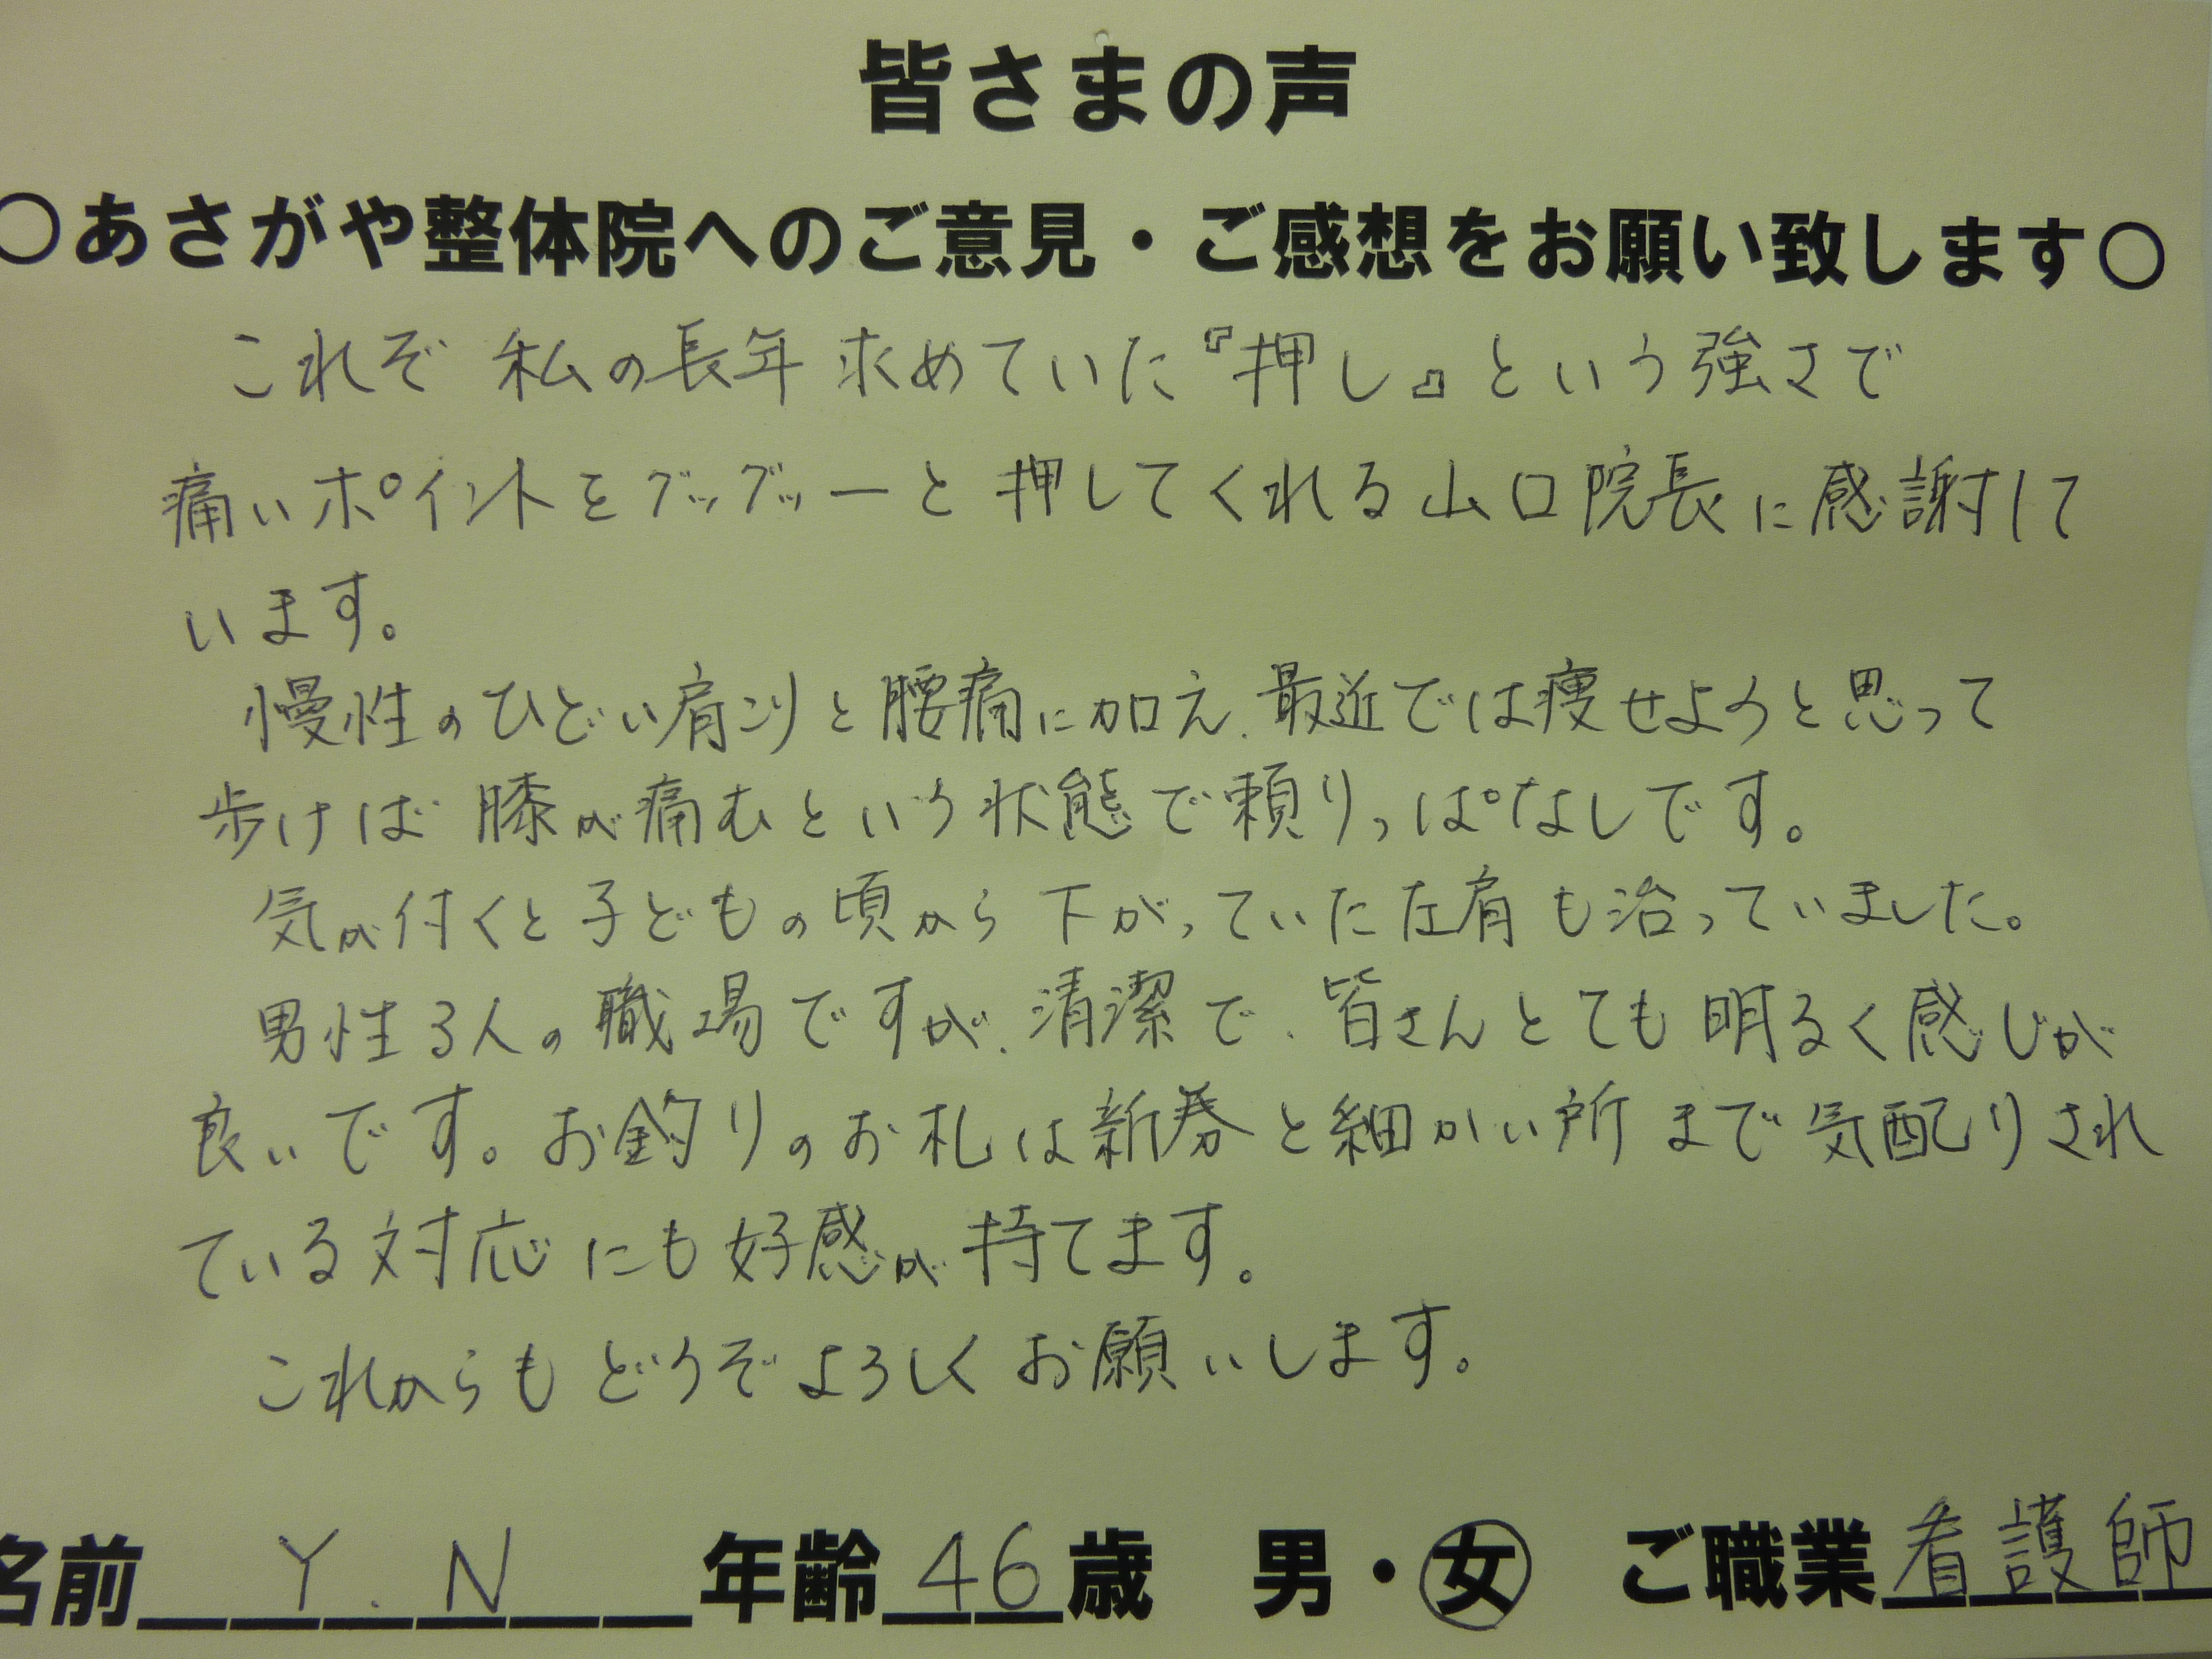 皆さまの声
○あさがや整体院へのご意見・ご感想をお願い致します○
これぞ 私の長年 求めていた『押し』という強さで
痛いポイントをグッグッーと 押してくれる山口院長に感謝して
います。
慢性のひどい肩コリと腰痛に加え、最近では痩せようと思って
歩けば 膝が痛むという状態で頼りっぱなしです。
気が付くと子どもの頃から 下がっていた左肩も治っていました。
男性3人の職場ですが、清潔で、皆さんとても明るく感じが
良いです。お釣りのお札は新券と細かい所まで気配りされ
ている対応にも好感が持てます。
これからもどうぞよろしくお願いします。
名前 Y.N 年齢 46 歳 男・女 ご職業 看護師